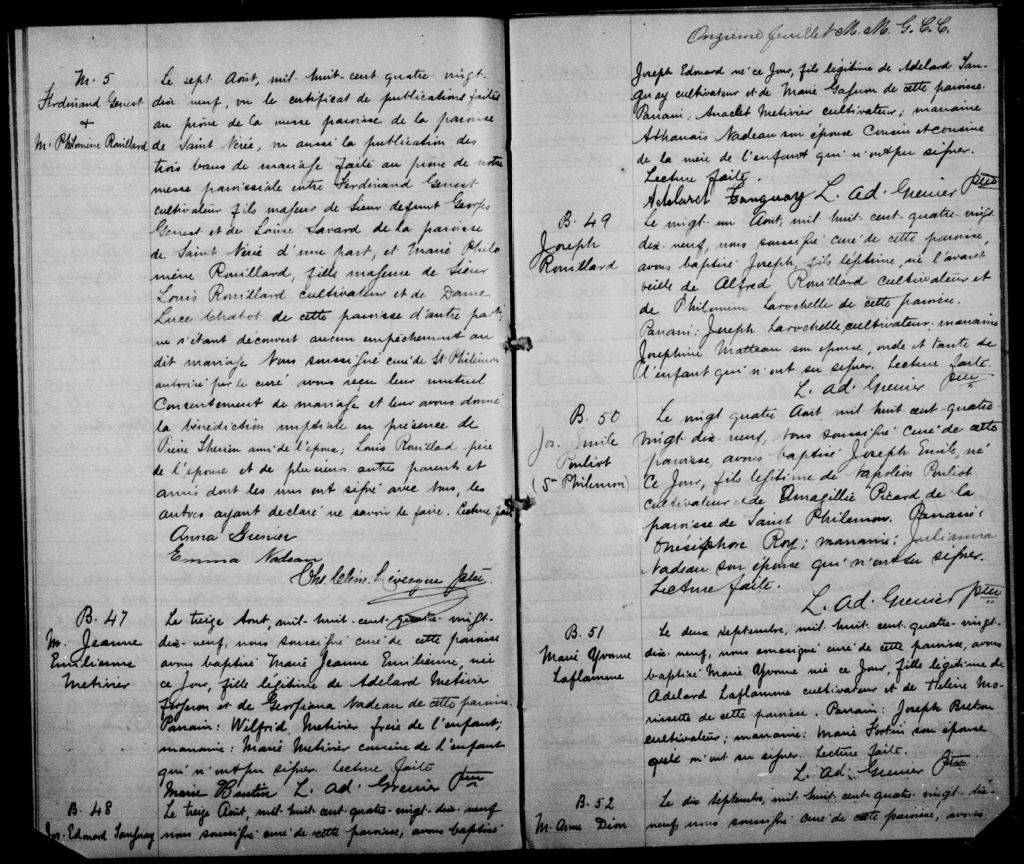 M. 5
Ferdinand Genest
+
M. Philomène Rouillard
Le sept Août, mil huit-cent quatre-vingt-
dix neuf, vu le certificat de publications faites
au prone de la messe paroisse de la paroisse
de Saint Nérée, vu aussi la publication des
trois bans de mariage faite au prone de notre
messe paroissiale entre Ferdinand Genest
cultivateur fils majeur de Sieur defunt Georges
Genest et de Louise Savard de la paroisse
de Saint Nérée d'une part, et Marie Philo
mène Rouillard, fille majeure de Sieur
Louis Rouillard cultivateur et de Dame
Luce Chabot de cette paroisse d'autre part;
ne s'étant decouvert aucun empêchement au
dit mariage Nous soussigné curé de St. Philémon
autorisé par le curé avons reçu leur mutuel
Consentement de mariage et leur avons donné
la bénédiction nuptiale en présence de
Pierre Therien ami de l'époux; Louis Rouillard père
de l'épouse et de plusieurs autres parents et
amis dont les uns ont signé avec nous, les
autres ayant declaré ne savoir le faire. Lecture faite
Anna Grenier
Emma Nadeau
Levesque ptre
B. 47
M. Jeanne
Emilienne
Metivier
Le treize Aout, mil-huit-cent-quatre-vingt-
dix-neuf, nous soussigné curé de cette paroisse
avons baptisé Marie Jeanne Emilienne, née
ce Jour, fille légitime de Adelard Metivier
forgeron et de Georgiana Nadeau de cette paroisse.
Parrain: Wilfrid Metivier frère de l'enfant;
marraine: Marie Metivier cousine de l'enfant
qui n'ont pu signer. Lecture faite
Marie L. Ad. Grenier Ptre
B. 48
Jos. Edouard Tanguay
Le treize Août, mil-huit-cent-quatre-vingt-dix-neuf
nous soussigné curé de cette paroisse, avons baptisé
Onzième feuillet M. M. G. C. C.
Joseph Edouard né ce Jour, fils légitime de Adelard Tan-
guay cultivateur et de Marie Gagnon de cette paroisse.
Parrain: Anaclet Metivier cultivateur; marraine
Athanaïs Nadeau son épouse Cousin et cousine
de la mère de l'enfant qui n'ont pu signer.
Lecture faite.
Tanguay L. Ad. Grenier Ptre
B. 49
Joseph
Rouillard
Le vingt un Aout, mil huit-cent-quatre-vingt
dix-neuf, nous soussigné curé de cette paroisse,
avons baptisé Joseph, fils légitime, né l'avant
veille de Alfred Rouillard cultivateur et
de Philomène Larochelle de cette paroisse.
Parrain: Joseph Larochelle cultivateur. marraine
Josephine Matteau son épouse, oncle et tante de
l'enfant qui n'ont su signer. Lecture faite.
L. Ad. Grenier Ptre
B. 50
Jos. Emile
Pouliot
(St Philemon)
Le vingt quatre Aout mil huit-cent-quatre-
vingt-dix-neuf, Nous soussigné curé de cette
paroisse, avons baptisé Joseph Emile, né
Ce Jour, fils legitime de Napoléon Pouliot
cultivateur et de Picard de la
paroisse de Saint Philemon. Parrain:
Onésiphore Roy; marraine: Julianna
Nadeau son épouse qui n'ont su signer.
Lecture faite.
L. Ad. Grenier Ptre
B. 51
Marie Yvonne
Laflamme
Le deux septembre, mil huit-cent-quatre-vingt-
dix-neuf, nous soussigné curé de cette paroisse, avons
baptisé Marie Yvonne née ce Jour, fille légitime de
Adelard Laflamme cultivateur et de Hélène Mo-
rissette de cette paroisse. Parrain: Joseph Breton
cultivateur; marraine: Marie Fortin son épouse
n'ont su signer. Lecture faite.
L. Ad. Grenier Ptre
B. 52
M. Anne Dion
Le dix septembre, mil-huit-cent quatre-vingt dix-
neuf, nous soussigné curé de cette paroisse, avons